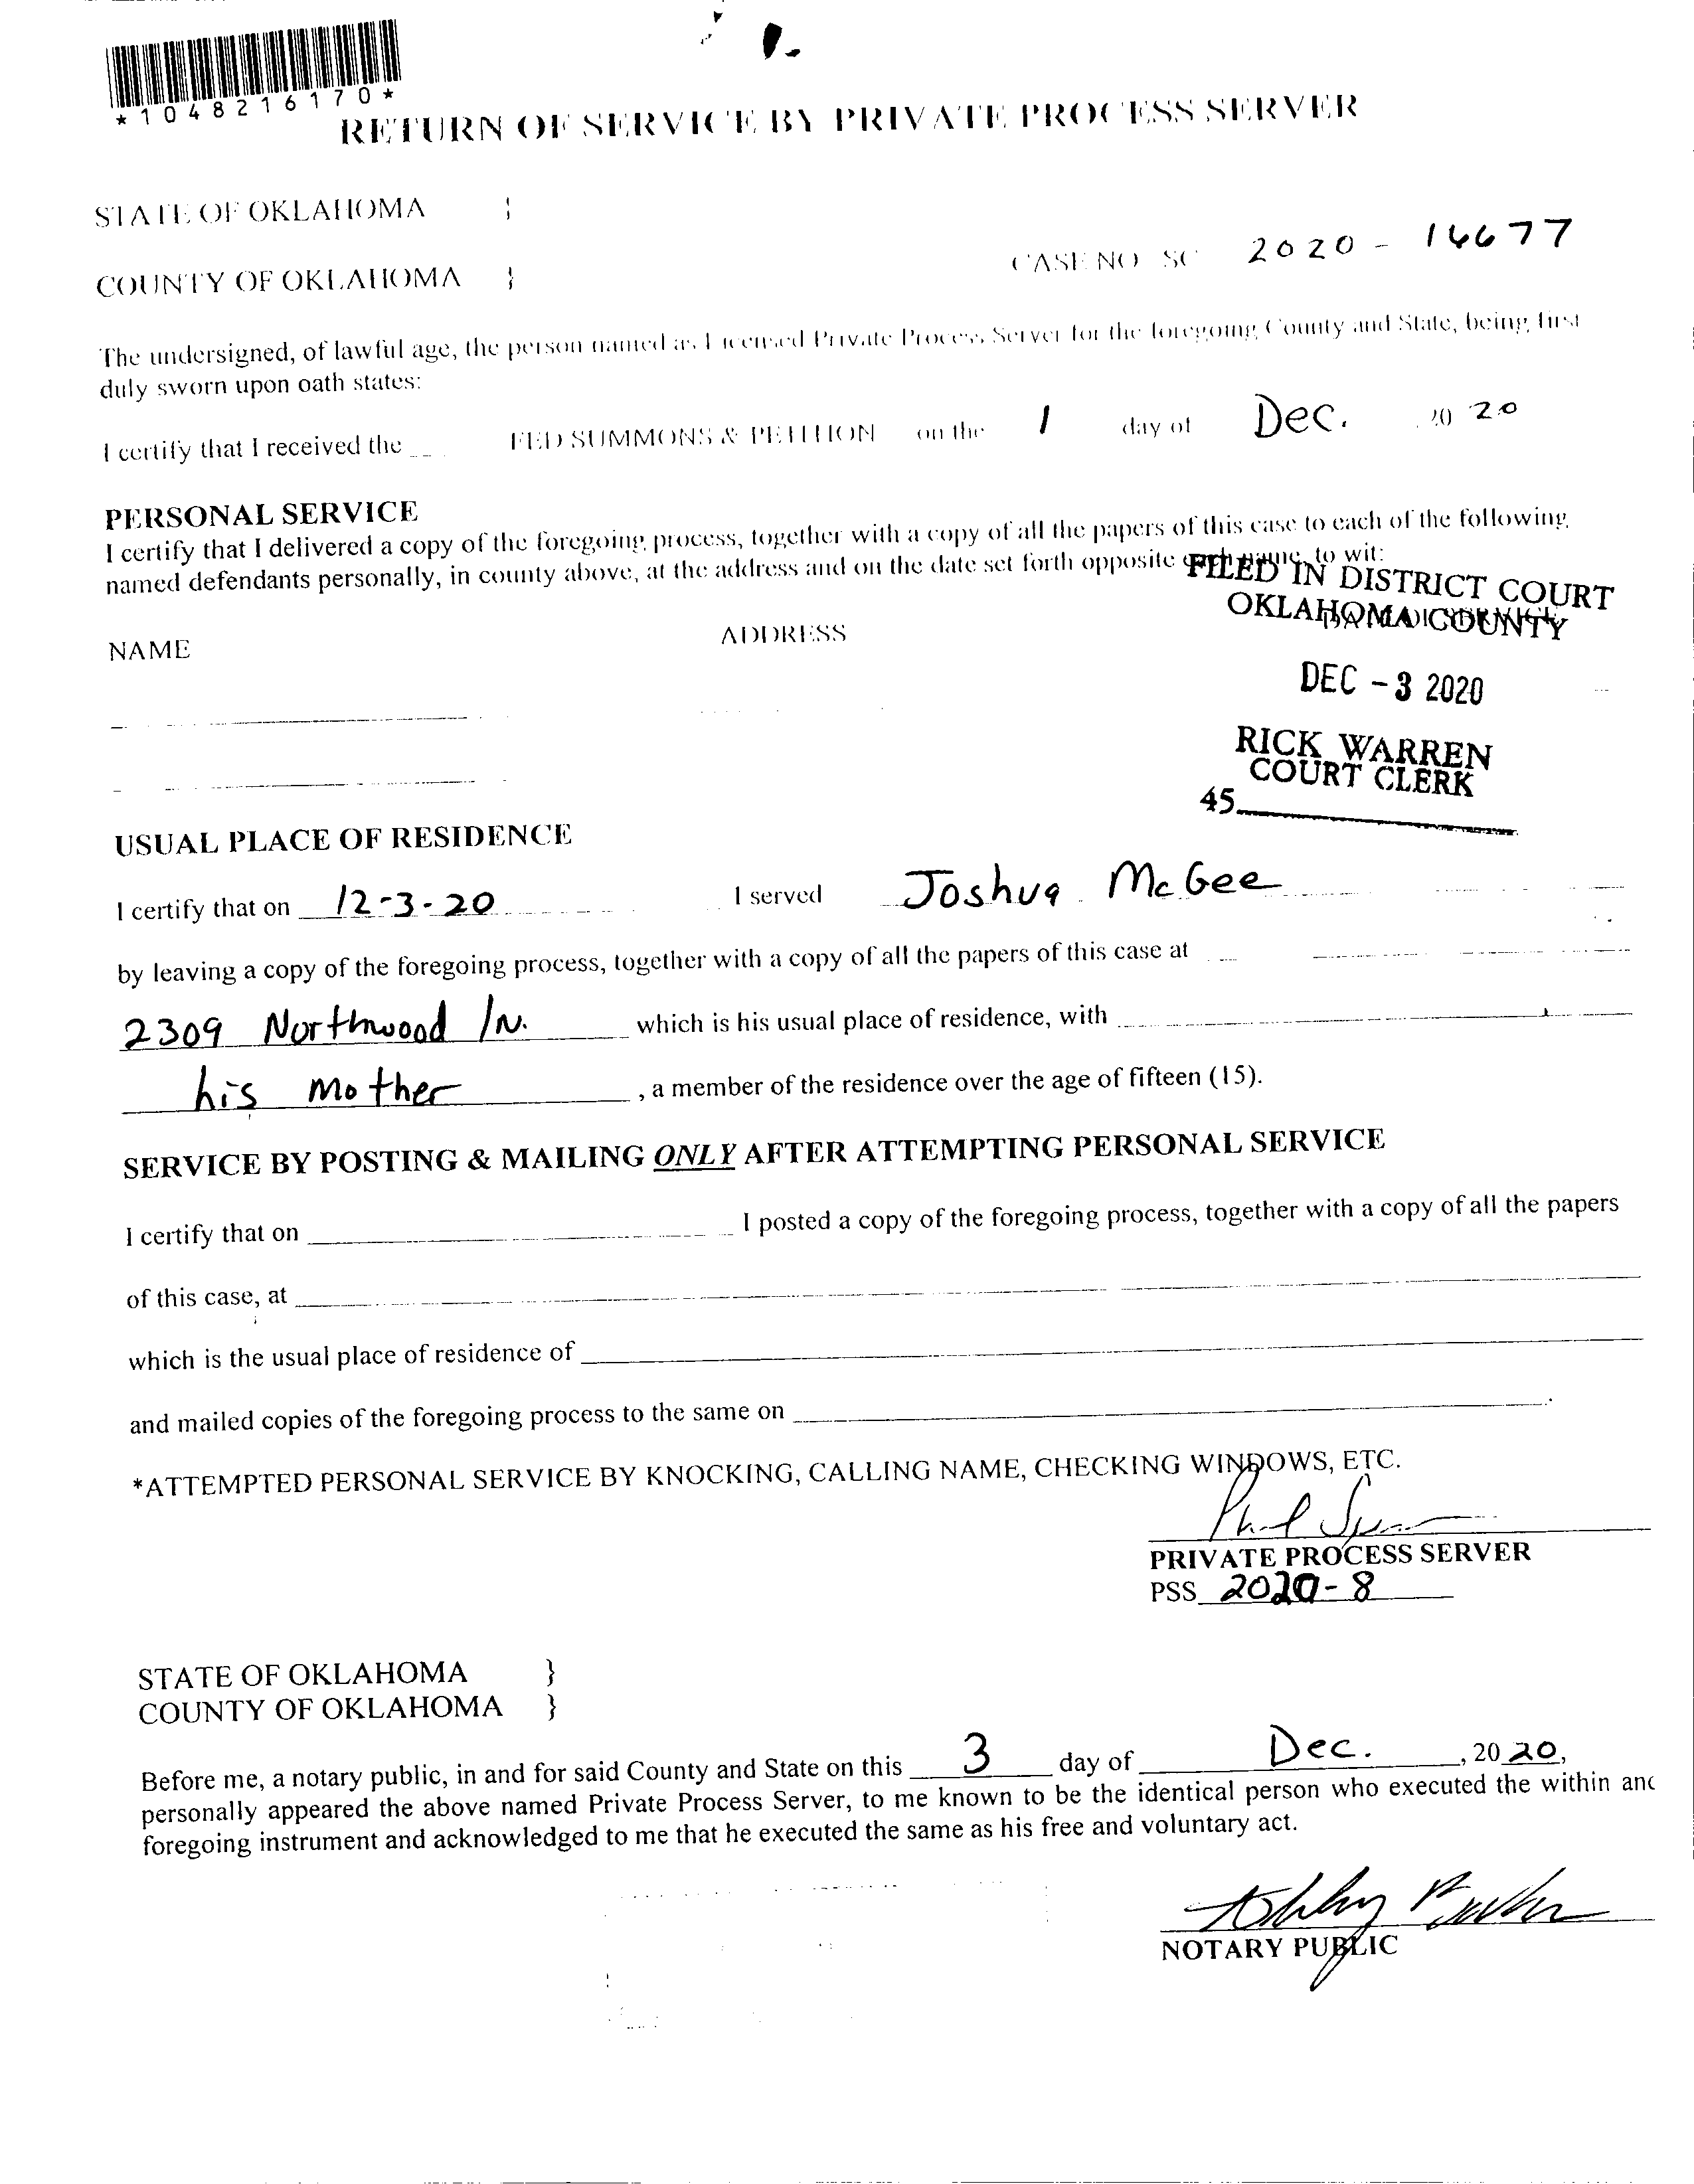 *1048216170*
RETURN OF SERVICE BY PRIVATE PROCESS SERVER
STATE OF OKLAHOMA }
CASE NO SC 2020 - 16677
COUNTY OF OKLAHOMA }
The undersigned, of lawful age, the person named as Licensed Private Process Server for the foregoing County and State, being first
duly sworn upon oath states:
I certify that I received the FED SUMMONS & PETITION on the 1 day of Dec. 20 20
PERSONAL SERVICE
I certify that I delivered a copy of the foregoing process, together with a copy of all the papers of this case to each of the following
named defendants personally, in county above, at the address and on the date set forth opposite each name, to wit:
FILED IN DISTRICT COURT
OKLAHOMA COUNTY
NAME ADDRESS
DEC - 3 2020
RICK WARREN
COURT CLERK
45
USUAL PLACE OF RESIDENCE
I certify that on 12-3-20 I served Joshua McGee
by leaving a copy of the foregoing process, together with a copy of all the papers of this case at
2309 Northwood ln. which is his usual place of residence, with
his Mother , a member of the residence over the age of fifteen (15).
SERVICE BY POSTING & MAILING ONLY AFTER ATTEMPTING PERSONAL SERVICE
I certify that on I posted a copy of the foregoing process, together with a copy of all the papers
of this case, at
which is the usual place of residence of
and mailed copies of the foregoing process to the same on .
*ATTEMPTED PERSONAL SERVICE BY KNOCKING, CALLING NAME, CHECKING WINDOWS, ETC.
PRIVATE PROCESS SERVER
PSS 2020-8
STATE OF OKLAHOMA }
COUNTY OF OKLAHOMA }
Before me, a notary public, in and for said County and State on this 3 day of Dec. , 20 20,
personally appeared the above named Private Process Server, to me known to be the identical person who executed the within and
foregoing instrument and acknowledged to me that he executed the same as his free and voluntary act.
NOTARY PUBLIC